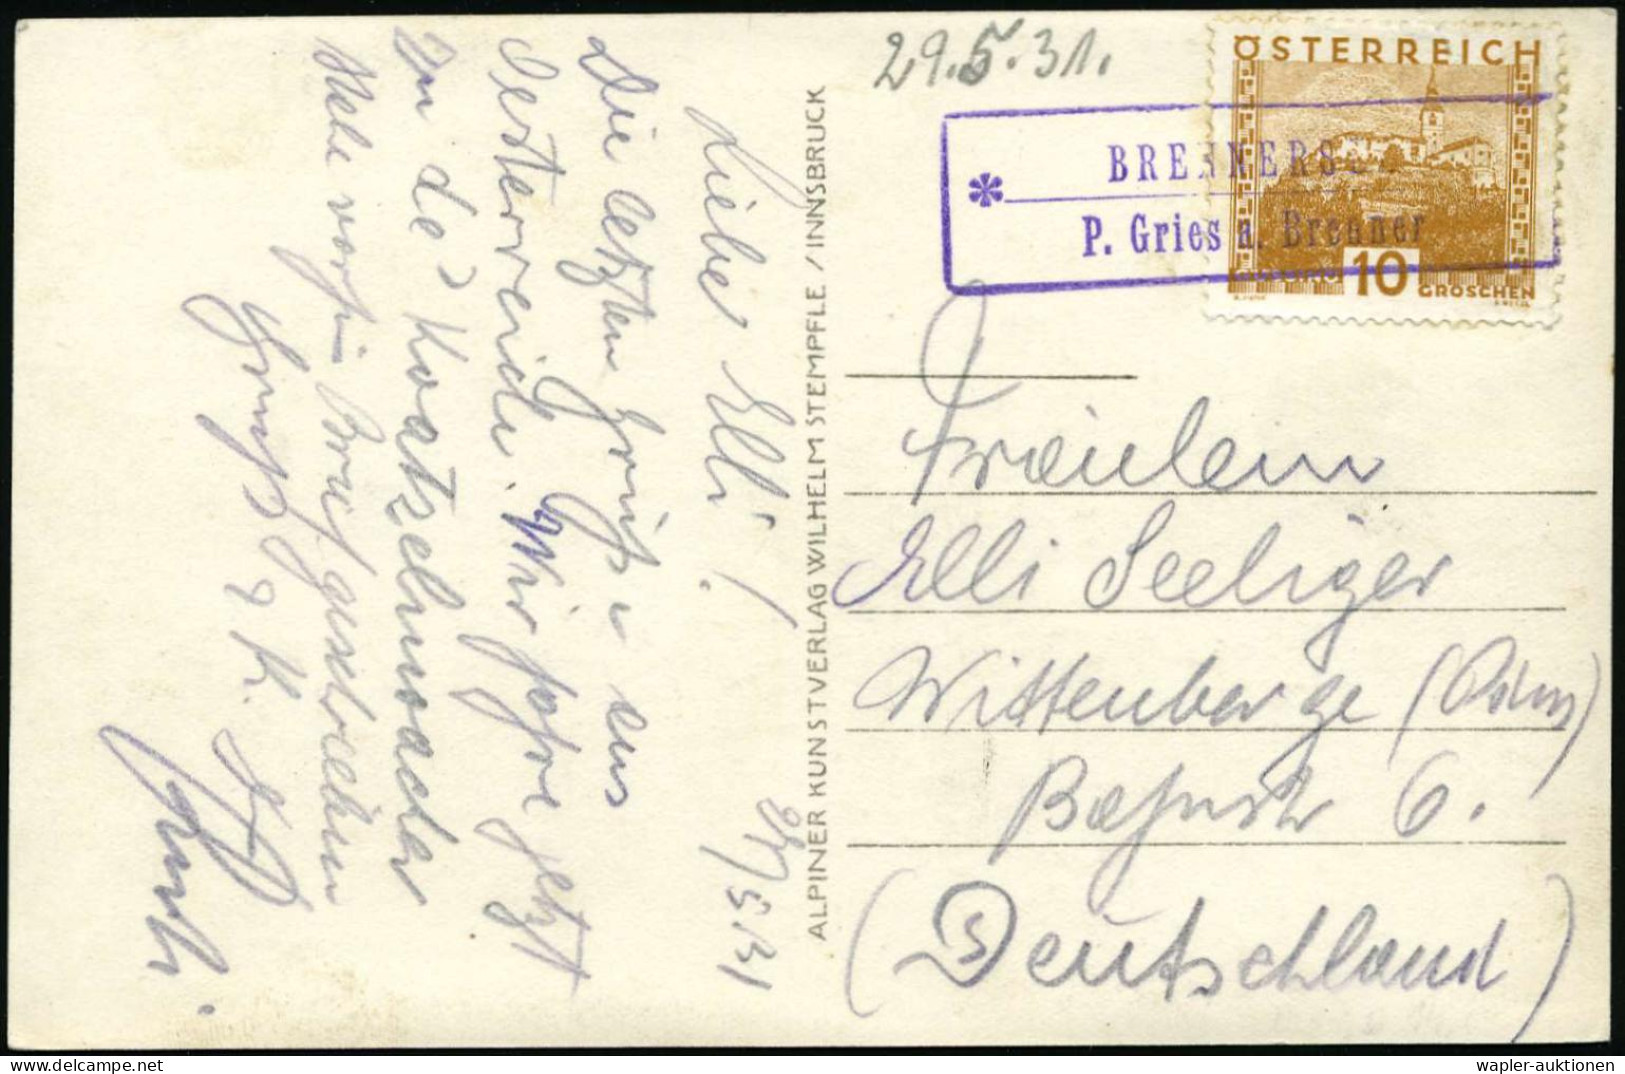 29.5.31.
ÖSTERREICH
10
GROSCHEN
BRENNERSEE
P. Gries a. Brenner
29/5.31
Liebe Elli!
Die letzten Grüße aus
Oesterreich. Wir fahre jetzt
In de
Habe vorhin Brief geschrieben
Gruß & K.
ALPINER KUNSTVERLAG WILHELM STEMPFLE / INNSBRUCK
Fräulein
Elli Seeliger
Wittenberge
Bahnstr 6.
(Deutschland)
wapler-auktionen